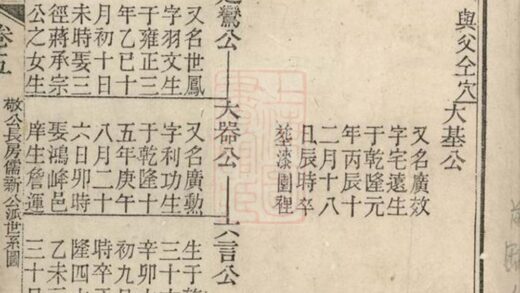 與父仝穴
大基公
又名廣效
字宅遠生
于乾隆元
年丙辰十
二月十八
丑辰時卒
塟漆園裡
鸞公
又名世鳳
字羽文生
于雍正三
年乙巳十
月初十日
未時娶三
徑蔣承宗
公之女生
大器公
又名廣勲
字利功生
于乾隆十
五年庚午
八月二十
六日卯時
娶鴻峰邑
庠生詹運
六言公
生于乾
三十
辛卯
初九
時卒
隆四
乙未
三十
卷五
敬公長房儒新公派世系圖